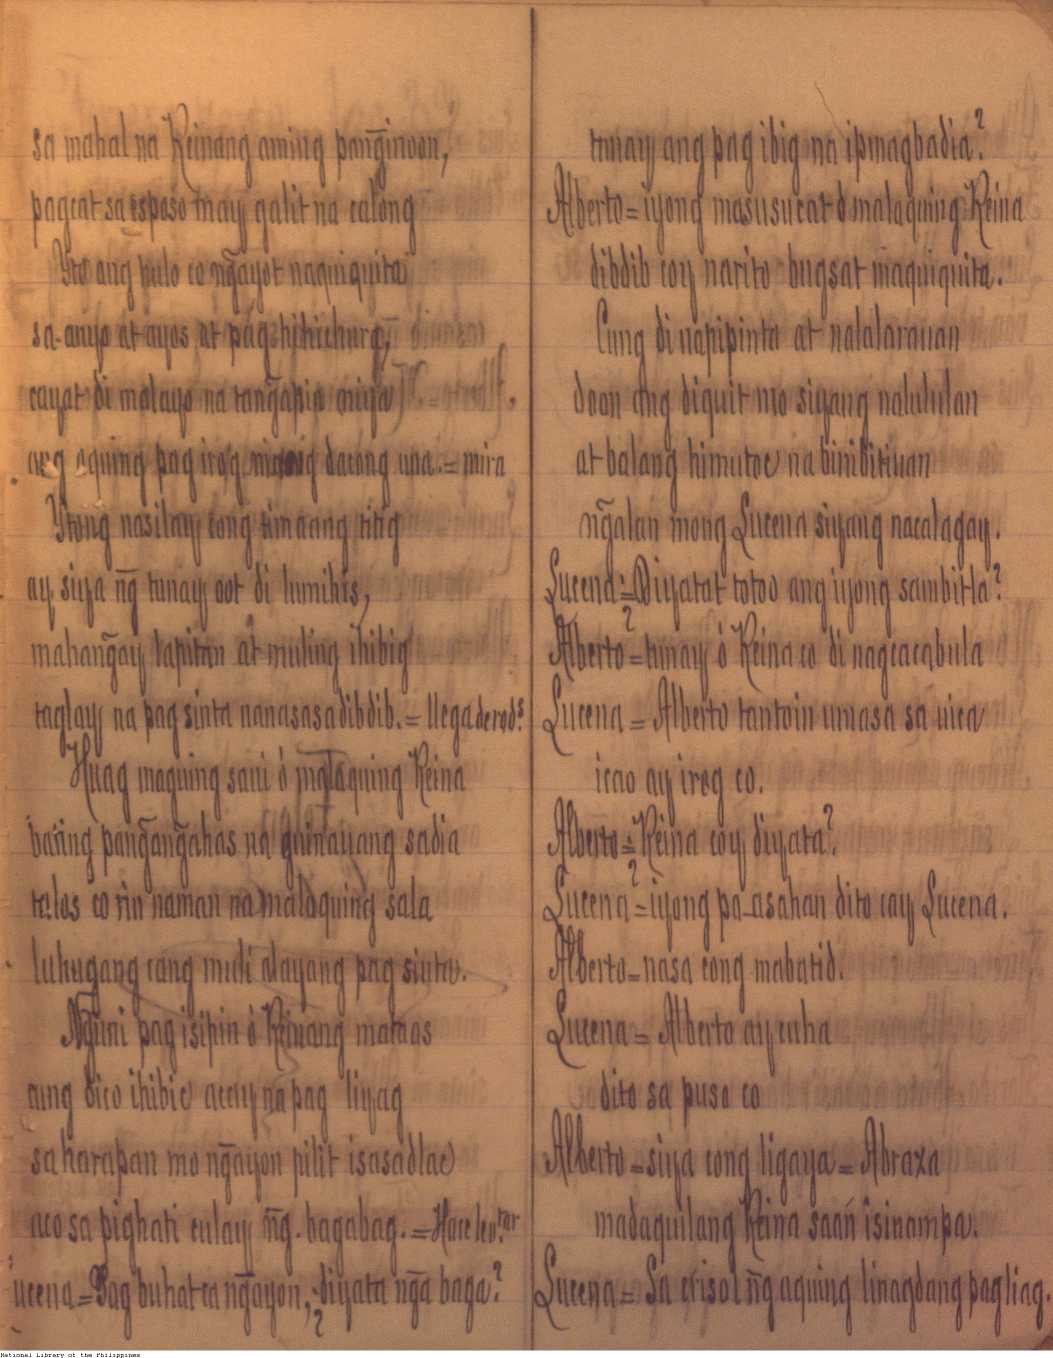 sa mahal na Reinang aming pang̃inoon,
pagcat sa esposo may galit na calong
Yto ang hulo co ng̃ayot naquiquita
sa anyo at ayos at pagshihichurg,
cayat di malayo na tang̃apin niya
ang aquing pag irog daong una. = mira
Ytong nasilay cong timaang titig
ay siya ng̃ tunay oot di lumihis,
mahang̃ay lapitan at muling ihibig
taglay na pag sinta nanasasadibdib. = llega de rod.s
Huag maguing saui ó mg̃a Reina
baring pang̃ang̃ahas na guinauang sadia
talos co rin naman na malaquing sala
luhugang cang muli alayang pag sinta.
Ng̃uni pag isipin ó Reinang mataas
cung dico ihibic acay na pag liyag
sa harapan mo ng̃ayon pilit isasadlac
aco sa pighati culay ng̃. bagabag. = Hace lev.tar
ucena = Pag buhat ca ng̃ayon, ¿diyata ng̃a baga?
tunay ang pag ibig na ipinagbadia?
Alberto = iyong masusucat ó malaquing Reina
dibdib coy narito bugsat maquiquita.
Cung di napipinta at nalalarauan
doon ang diquit mo siyang nalululan
at balang himutoc na binibitiuan
ng̃alan mong Lucena siyang nacalagay.
Lucena = ¿Diyatat totoo ang iyong sambitla?
Alberto = tunay ó Reina co di nagcacabula
Lucena = Alberto tantoin umasa sa uica
icao ay irog co.
Alberto = ¿Reina coy diyata?
Lucena = iyong pa-asahan dito cay Lucena.
Alberto = nasa cong mabatid.
Lucena = Alberto ay cuha
dito sa puso co
Alberto = siya cong ligaya = Abraza
madaquilang Reina saan isinampa.
Lucena = Sa crisol ng̃ aquing linagdang pagliag.